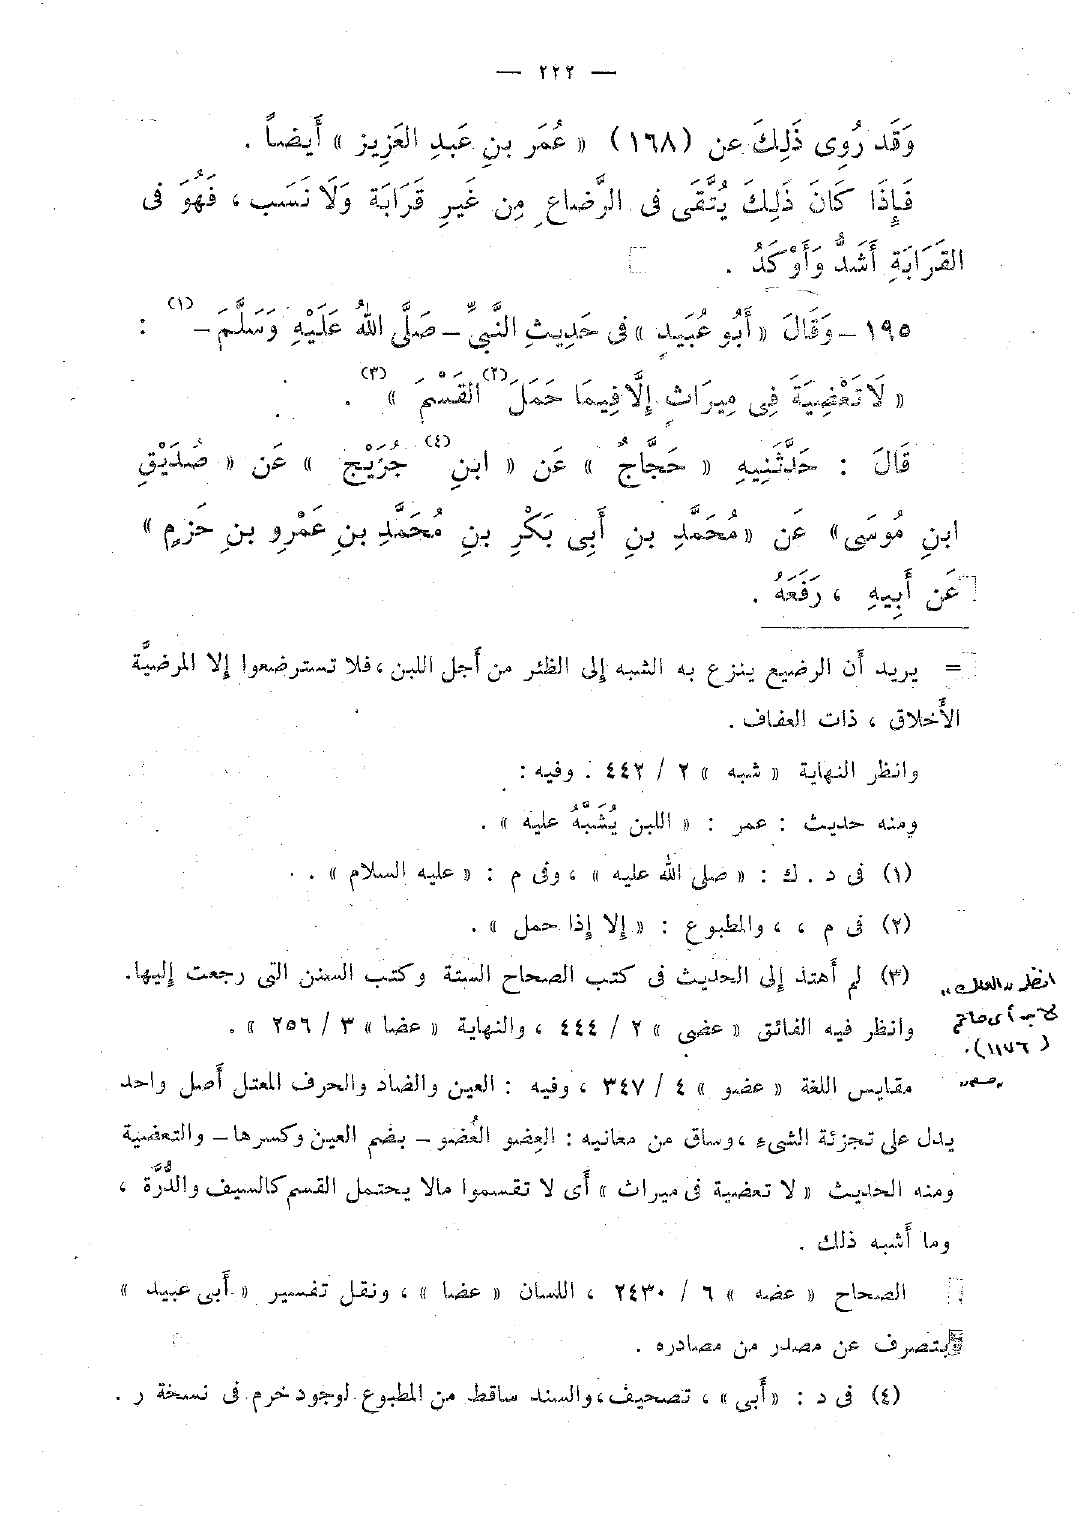 — ٢٢٢ —
وَقَد رُوِى ذَلِكَ عن (١٦٨) « عُمَر بنِ عَبدِ العَزِيز » أَيضاً .
فَإِذَا كَانَ ذَلِكَ يُتَّقَى فى الرَّضاعِ مِن غَيرِ قَرَابَة وَلَا نَسَب ، فَهُوَ فى
القَرَابَةِ أَشَدُّ وَأَوْكَدُ .
١٩٥ – وَقَالَ « أَبُو عُبَيدٍ » فى حَدِيثِ النَّبىِّ – صَلَّى اللهُ عَلَيْهِ وَسَلَّمَ – (١) :
« لَا تَعْضِيَةَ فِى مِيرَاثٍ إِلَّا فِيمَا حَمَلَ (٢) القَسْمَ » (٣) .
قَالَ : حَدَّثَنِيهِ « حَجَّاجٌ » عَن « ابنِ (٤) جُرَيْج » عَن « صُدَيْقِ
ابنِ مُوسَى » عَن « مُحَمَّدِ بنِ أَبِى بَكْرِ بنِ مُحَمَّدِ بنِ عَمْرِو بنِ حَزمٍ »
عَن أَبِيهِ ، رَفَعَهُ .
= يريد أَن الرضيع ينزع به الشبه إلى الظئر من أَجل اللبن ، فلا تسترضعوا إلا المرضيَّة
الأَخلاق ، ذات العفاف .
وانظر النهاية « شبه » ٢ / ٤٤٢ . وفيه :
ومنه حديث : عمر : « اللبن يُشَبَّهُ عليه » .
(١) فى د . ك : « صلى الله عليه » ، وفى م : « عليه السلام » .
(٢) فى م ، ، والمطبوع : « إلا إذا حمل » .
(٣) لم أهتد إلى الحديث فى كتب الصحاح الستة وكتب السنن التى رجعت إليها.
انظر «العلل»
لابن أبى حاتم
(١١٧٦).
وانظر فيه الفائق « عضى » ٢ / ٤٤٤ ، والنهاية « عضا » ٣ / ٢٥٦ » .
مقايس اللغة « عضو » ٤ / ٣٤٧ ، وفيه : العين والضاد والحرف المعتل أَصل واحد
يدل على تجزئة الشىءِ ، وساق من معانيه : العِضو العُضو – بضم العين وكسرها – والتعضية
ومنه الحديث « لا تعضية فى ميراث » أَى لا تقسموا مالا يحتمل القسم كالسيف والدُّرَّة ،
وما أَشبه ذلك .
الصحاح « عضه » ٦ / ٢٤٣٠ ، اللسان « عضا » ، ونقل تفسير « أَبى عبيد »
بتصرف عن مصدر من مصادره .
(٤) فى د : « أَبى » ، تصحيف ، والسند ساقط من المطبوع لوجود خرم فى نسخة ر .